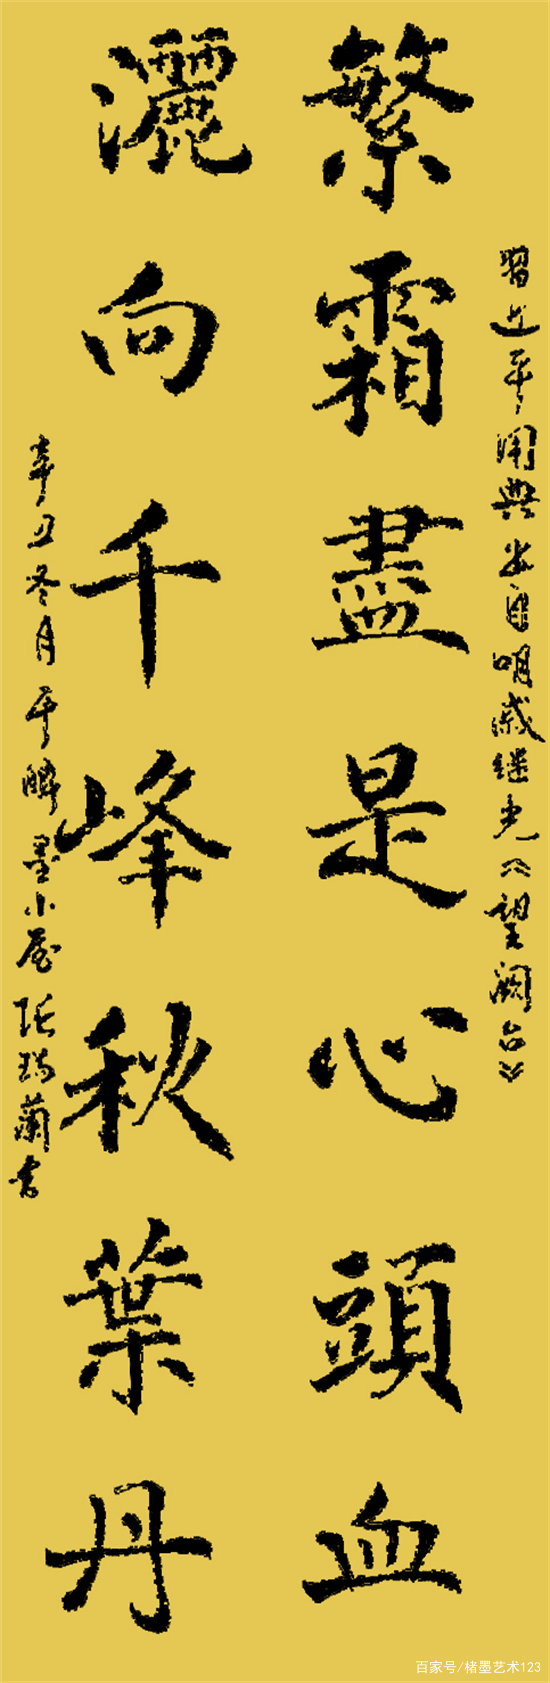 習近平用典出自明戚继光《望阙台》
繁霜盡是心頭血
灑向千峰秋葉丹
辛丑冬月于醉墨小屋张瑞蘭書
百家号/楮墨艺术123